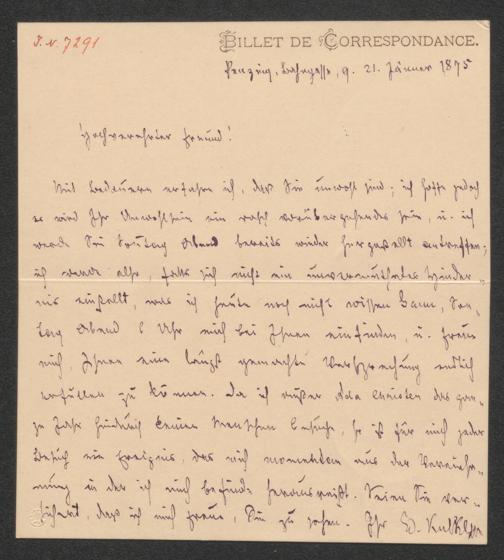 J. N. 7291
BILLET DE CORRESPONDANCE.
Penzing, Bahngasse, 9. 21. Jänner 1875
Hochverehrter Freund!
Mit Bedauern erfahre ich, daß Sie unwohl sind; ich hoffe jedoch
es wird Ihr Unwohlsein ein rasch vorübergehendes sein, u. ich
werde Sie Sontag Abend bereits wieder hergestellt antreffen;
ich werde also, falls sich nicht ein unvermuthetes Hinder-
nis einstellt, was ich heute noch nicht wissen kann, Son-
tag Abend 6 Uhr mich bei Ihnen einfinden, u. freue
mich, Ihnen eine längst gemachte Versprechung endlich
erfüllen zu können. Da ich außer Ada Christen das gan-
ze Jahr hindurch keinen Menschen besuche, so ist für mich jeder
Besuch ein Ereignis, das mich momentan aus der Vereinsa-
mung in der ich mich befinde herausreißt. Seien Sie ver-
sichert, daß ich mich freue, Sie zu sehen. Ihr Ed. Kulke